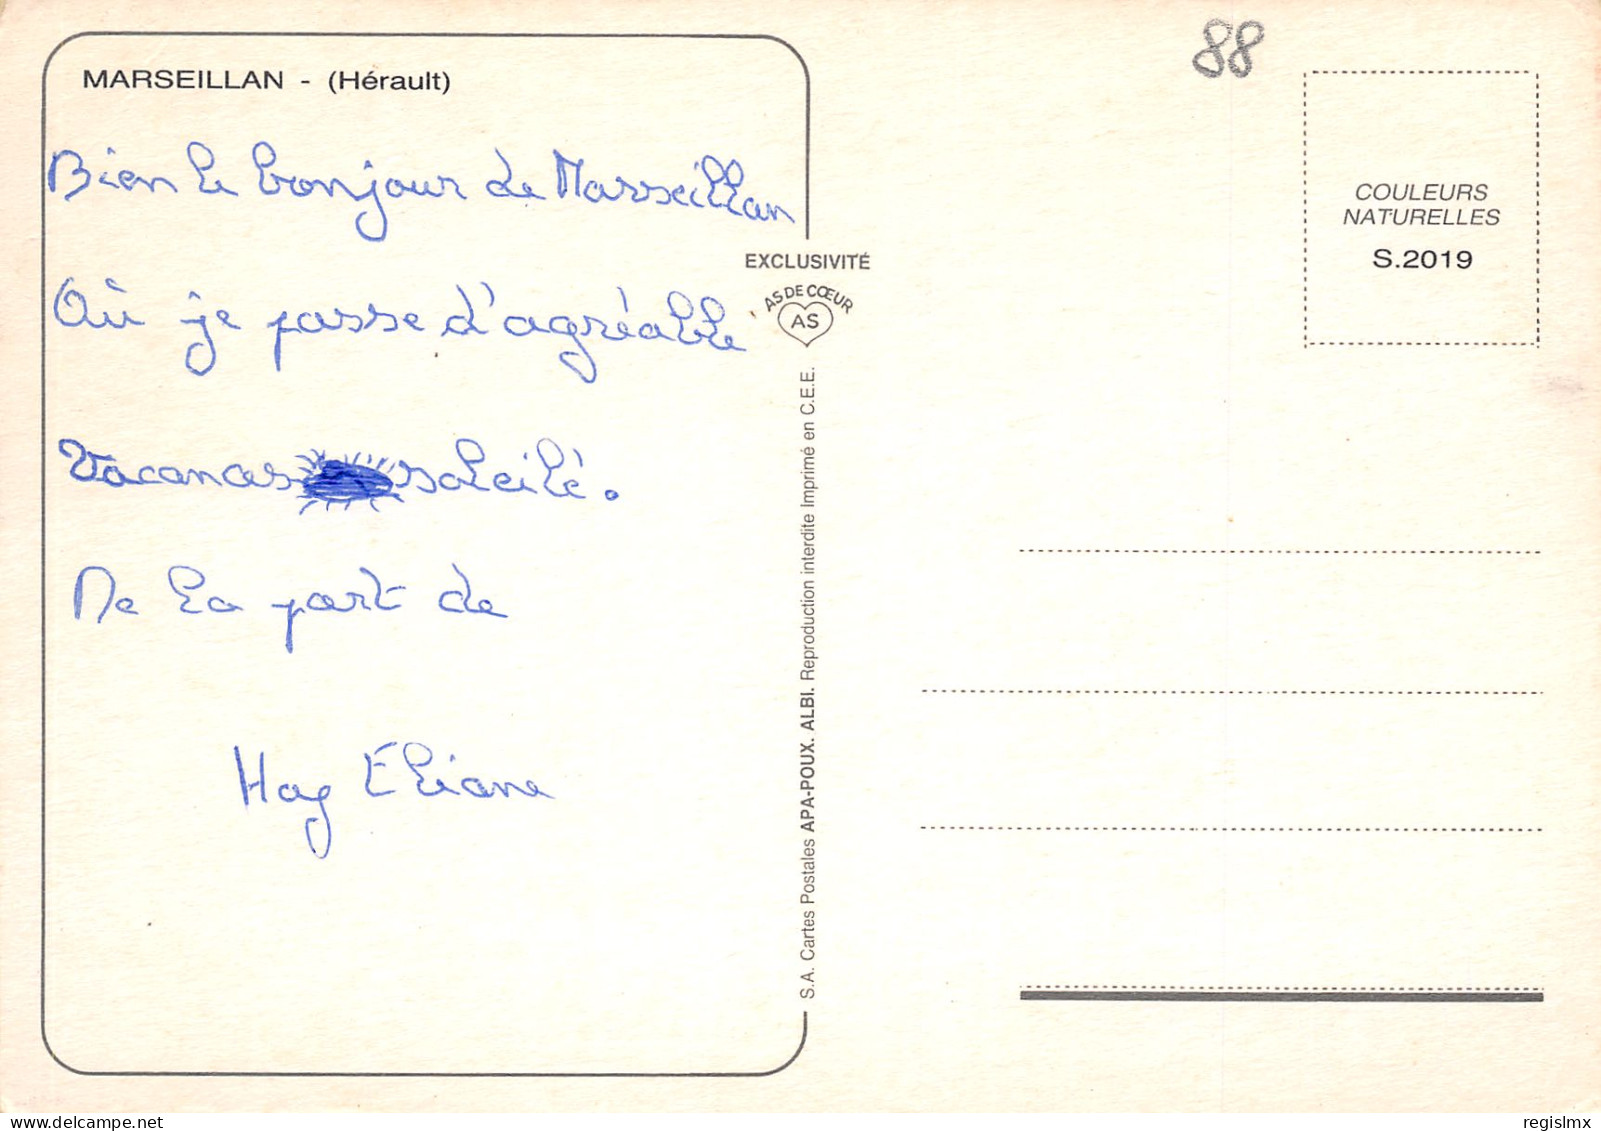 88
MARSEILLAN - (Hérault)
Bien le bonjour de Marseillan
Où je passe d'agréable
Vacances soleilé.
De la part de
Hag Eliane
EXCLUSIVITÉ
AS DE CŒUR
AS
S.A. Cartes Postales APA-POUX. ALBI. Reproduction interdite Imprimé en C.E.E.
COULEURS
NATURELLES
S.2019
regislmx